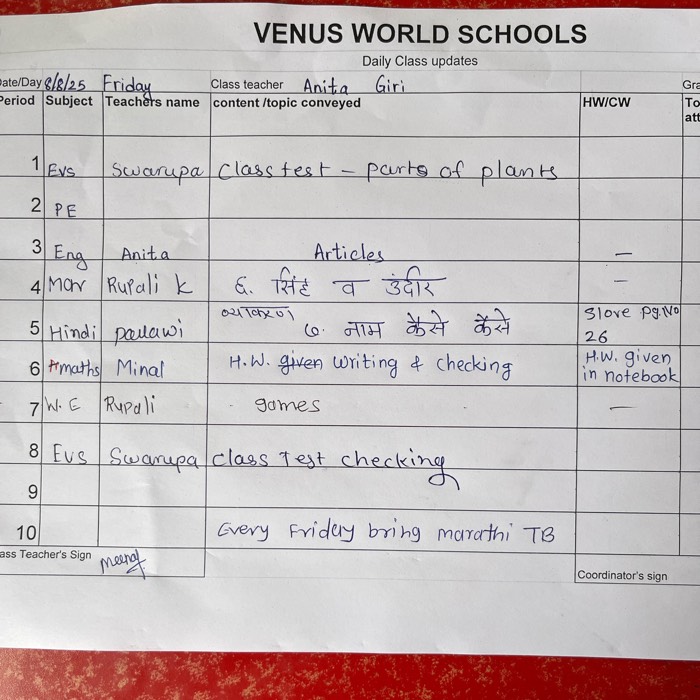 VENUS WORLD SCHOOLS
Daily Class updates
Date/Day 8/8/25 Friday Class teacher Anita Giri
Period Subject Teachers name content /topic conveyed HW/CW
1 Evs Swarupa Class test - parts of plants
2 PE
3 Eng Anita Articles —
4 Mar Rupali k ६. सिंह व उंदीर —
5 Hindi व्याकरण ७. नाम कैसे कैसे Slove pg.No
26
6 maths Minal H.W. given writing & checking H.W. given
in notebook
7 W.E Rupali - games —
8 Evs Swarupa class Test checking
9
10 Every Friday bring marathi TB
Class Teacher's Sign
Coordinator's sign